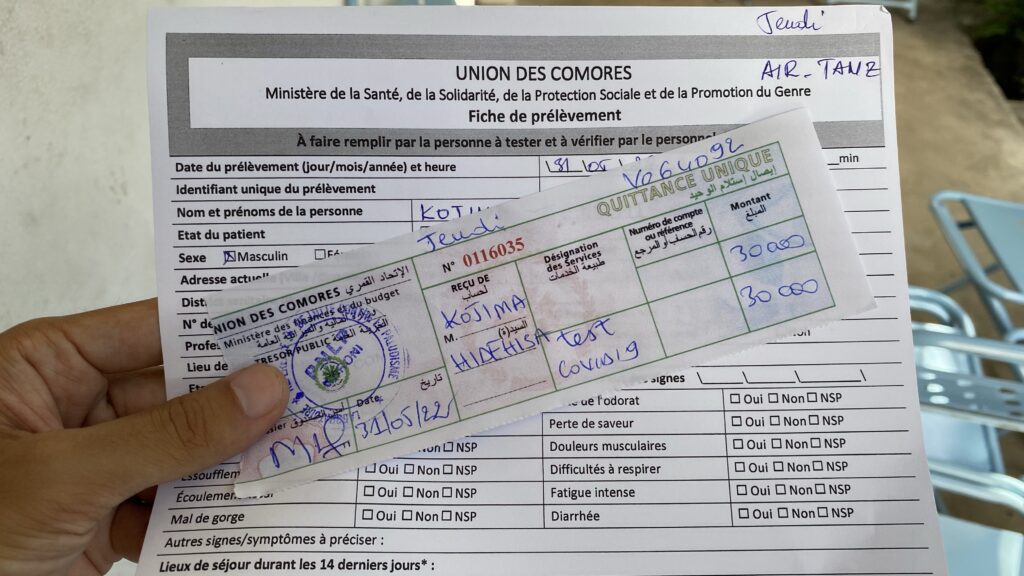 Jeudi
AIR-TANZ
UNION DES COMORES
Ministère de la Santé, de la Solidarité, de la Protection Sociale et de la Promotion du Genre
Fiche de prélèvement
À faire remplir par la personne à tester et à vérifier par le
Date du prélèvement (jour/mois/année) et heure 31 05 min
Identifiant unique du prélèvement
Nom et prénoms de la personne
Etat du patient
Sexe Masculin
Adresse
N° de
Lieu de
V064092
QUITTANCE UNIQUE
إيصال إستلام الوحيد
Jeudi
N° 0116035
UNION DES COMORES الإتحاد القمري
Ministère des finances et du budget
TRESOR PUBLIC
REÇU DE
KOJIMA
M. السيد(ة)
HIDEHISA
Désignation des Services
طبيعة الخدمات
test
COVID19
Numéro de compte ou référence
رقم الحساب أو المرجع
Montant
المبلغ
30 000
30 000
Date: تاريخ
31/05/22
signes
de l'odorat Oui Non NSP
Perte de saveur Oui Non NSP
Non NSP Douleurs musculaires Oui Non NSP
Oui Non NSP Difficultés à respirer Oui Non NSP
Écoulement Oui Non NSP Fatigue intense Oui Non NSP
Mal de gorge Oui Non NSP Diarrhée Oui Non NSP
Autres signes/symptômes à préciser :
Lieux de séjour durant les 14 derniers jours* :